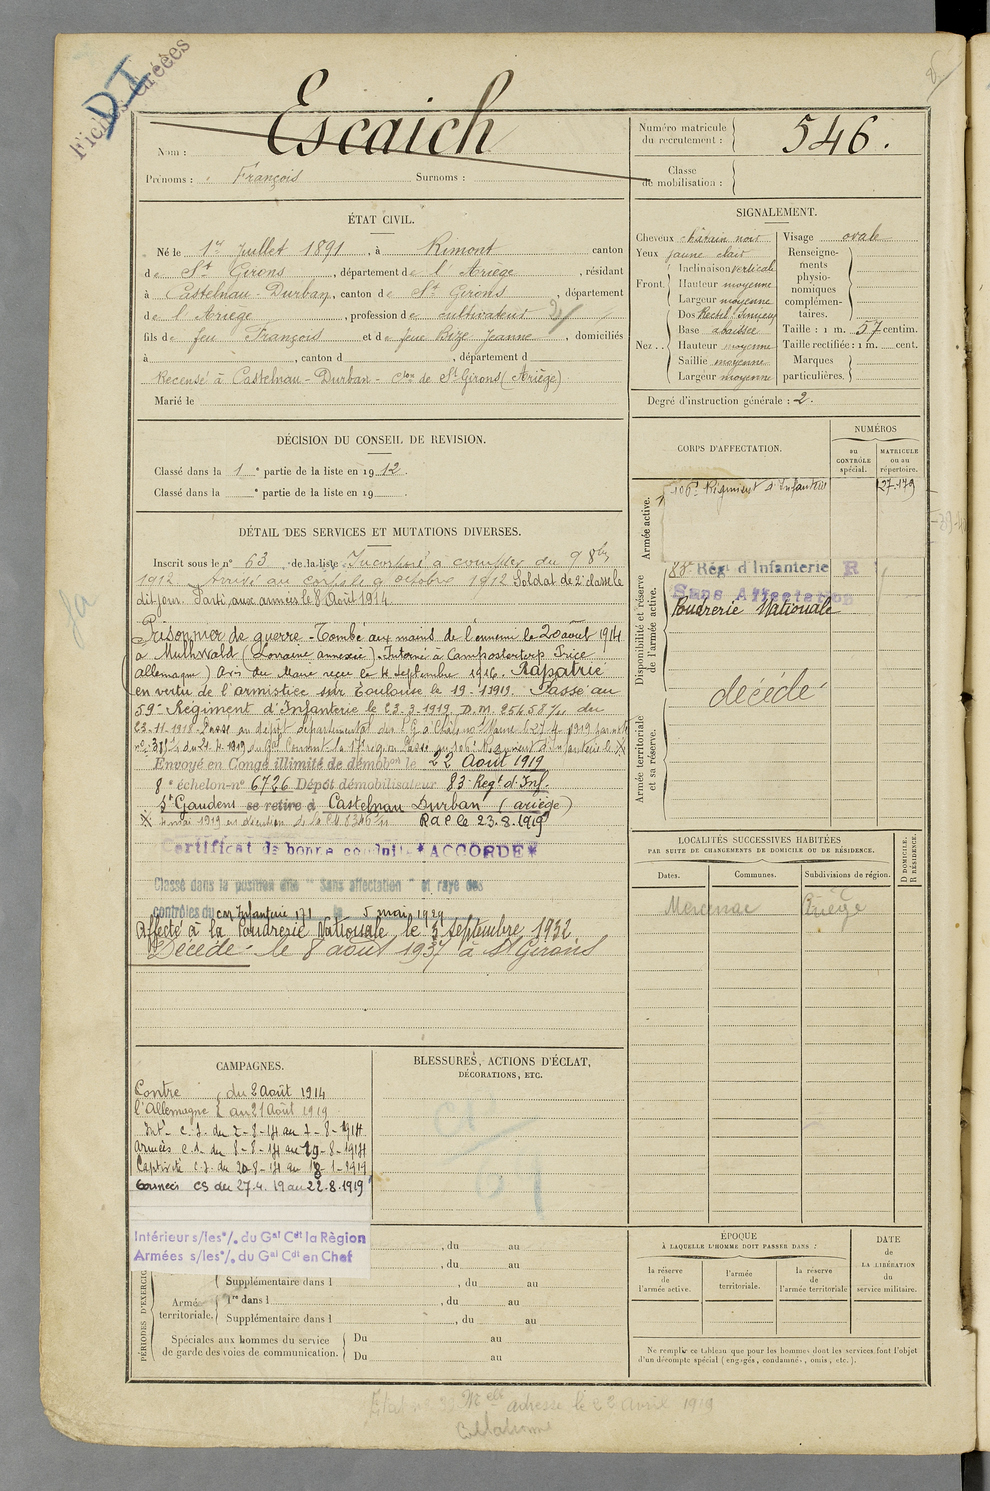 Fiches créées
DI
Escaich
Nom :
Prénoms : François Surnoms :
Numéro matricule
du recrutement : 546.
Classe
de mobilisation :
ÉTAT CIVIL.
Né le 1er Juillet 1891, à Rimont canton
de St Girons, département de l'Ariège, résidant
à Castelnau-Durban, canton de St Girons, département
de l'Ariège, profession de cultivateur
fils de feu François et de feue Bize Jeanne, domiciliés
à , canton d , département d
Recensé à Castelnau-Durban - con de St Girons (Ariège)
Marié le
SIGNALEMENT.
Cheveux châtain noir
Yeux jaune clair
Front. Inclinaison verticale
Hauteur moyenne
Largeur moyenne
Nez . . Dos Rectil. sinueux
Base abaissée
Hauteur moyenne
Saillie moyenne
Largeur moyenne
Visage ovale
Renseigne-
ments
physio-
nomiques
complémen-
taires.
Taille : 1 m. 57 centim.
Taille rectifiée : 1 m. cent.
Marques
particulières.
Degré d'instruction générale : 2.
DÉCISION DU CONSEIL DE REVISION.
Classé dans la 1e partie de la liste en 1912.
Classé dans la e partie de la liste en 19 .
CORPS D'AFFECTATION.
NUMÉROS
au
CONTRÔLE
spécial.
MATRICULE
ou au
répertoire.
Armée active.
106e Régiment d'Infanterie 27.179
Disponibilité et réserve
de l'armée active.
83e Rég. d'Infanterie R
Sans Affectation
Poudrerie Nationale
décédé
Armée territoriale
et sa réserve.
DÉTAIL DES SERVICES ET MUTATIONS DIVERSES.
Inscrit sous le n° 63 de la liste Incorporé à compter du 9 8bre
1912 Arrivé au corps le 9 octobre 1912 Soldat de 2e classe le
dit jour. Parti aux armées le 8 Août 1914
Prisonnier de guerre - Tombé aux mains de l'ennemi le 20 août 1914
à Muthwald (Lorraine annexée). Interné à
allemagne) Avis du Maire reçu le 4 Septembre 1916. Rapatrié
en vertu de l'armistice sur Toulouse le 19-1-1919. Passé au
59e Régiment d'Infanterie le 23-3-1919 D.M. du
23-11-1918. Passé au dépôt départemental des P.G. à
Envoyé en Congé illimité de démobon le 22 Août 1919
8e échelon-n° 6726 Dépôt démobilisateur 83e Regt d'Inf.
St Gaudens se retire à Castelnau Durban (ariège)
4 mai 1919 en exécution de la R a C le 23.8.1919
Certificat de bonne conduite *ACCORDÉ*
Classé dans la position dite "Sans affectation" et rayé des
contrôles du cm Infanterie 171 le 5 mai 1929
Affecté à la Poudrerie Nationale le 3 septembre 1932
Décédé le 8 août 1937 à St Girons
LOCALITÉS SUCCESSIVES HABITÉES
PAR SUITE DE CHANGEMENTS DE DOMICILE OU DE RÉSIDENCE.
D DOMICILE.
R RÉSIDENCE.
Dates. Communes. Subdivisions de région.
Mercenac Ariège
CAMPAGNES.
Contre du 2 Août 1914
l'Allemagne au 21 Août 1919
Intr c.s. du 2-8-14 au 7-8-1914
Armées c.d. du 8-8-14 au 19-8-1914
Captivité c.s. du 20-8-14 au 18-1-1919
CS du 27.4.19 au 22.8.1919
Intérieur s/les °/. du Gal Cdt la Région
Armées s/les °/. du Gal Cdt en Chef
BLESSURES, ACTIONS D'ÉCLAT,
DÉCORATIONS, ETC.
PÉRIODES D'EXERCICES
, du au
, du au
Supplémentaire dans l , du au
Armée
territoriale.
1re dans l , du au
Supplémentaire dans l , du au
Spéciales aux hommes du service
de garde des voies de communication.
Du au
Du au
ÉPOQUE
À LAQUELLE L'HOMME DOIT PASSER DANS :
la réserve
de
l'armée active.
l'armée
territoriale.
la réserve
de
l'armée territoriale
DATE
de
LA LIBÉRATION
du
service militaire.
Ne remplir ce tableau que pour les hommes dont les services font l'objet
d'un décompte spécial (engagés, condamnés, omis, etc.).
adresse le 22 Avril 1919